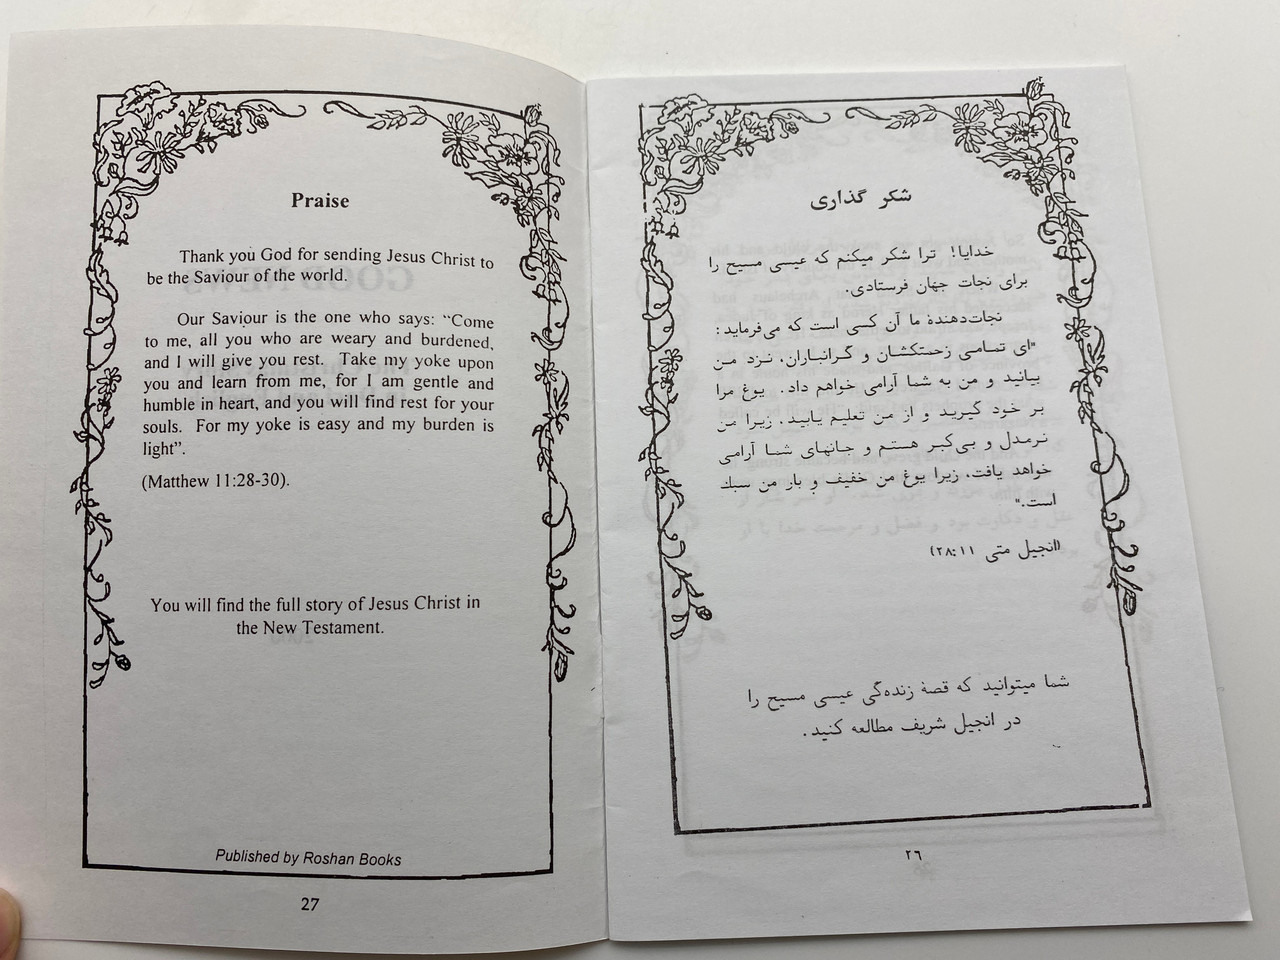 Praise
Thank you God for sending Jesus Christ to
be the Saviour of the world.
Our Saviour is the one who says: “Come
to me, all you who are weary and burdened,
and I will give you rest. Take my yoke upon
you and learn from me, for I am gentle and
humble in heart, and you will find rest for your
souls. For my yoke is easy and my burden is
light”.
(Matthew 11:28-30).
You will find the full story of Jesus Christ in
the New Testament.
Published by Roshan Books
27
شکر گذاری
خدایا! ترا شکر میکنم که عیسی مسیح را
برای نجات جهان فرستادی.
نجات‌دهندهٔ ما آن کسی است که می‌فرماید:
"ای تمامی زحمتکشان و گرانباران، نزد من
بیائید و من به شما آرامی خواهم داد. یوغ مرا
بر خود گیرید و از من تعلیم یابید. زیرا من
نرمدل و بی‌کبر هستم و جانهای شما آرامی
خواهد یافت، زیرا یوغ من خفیف و بار من سبک
است."
(انجیل متی ۲۸:۱۱)
شما میتوانید که قصهٔ زنده‌گی عیسی مسیح را
در انجیل شریف مطالعه کنید.
۲٦